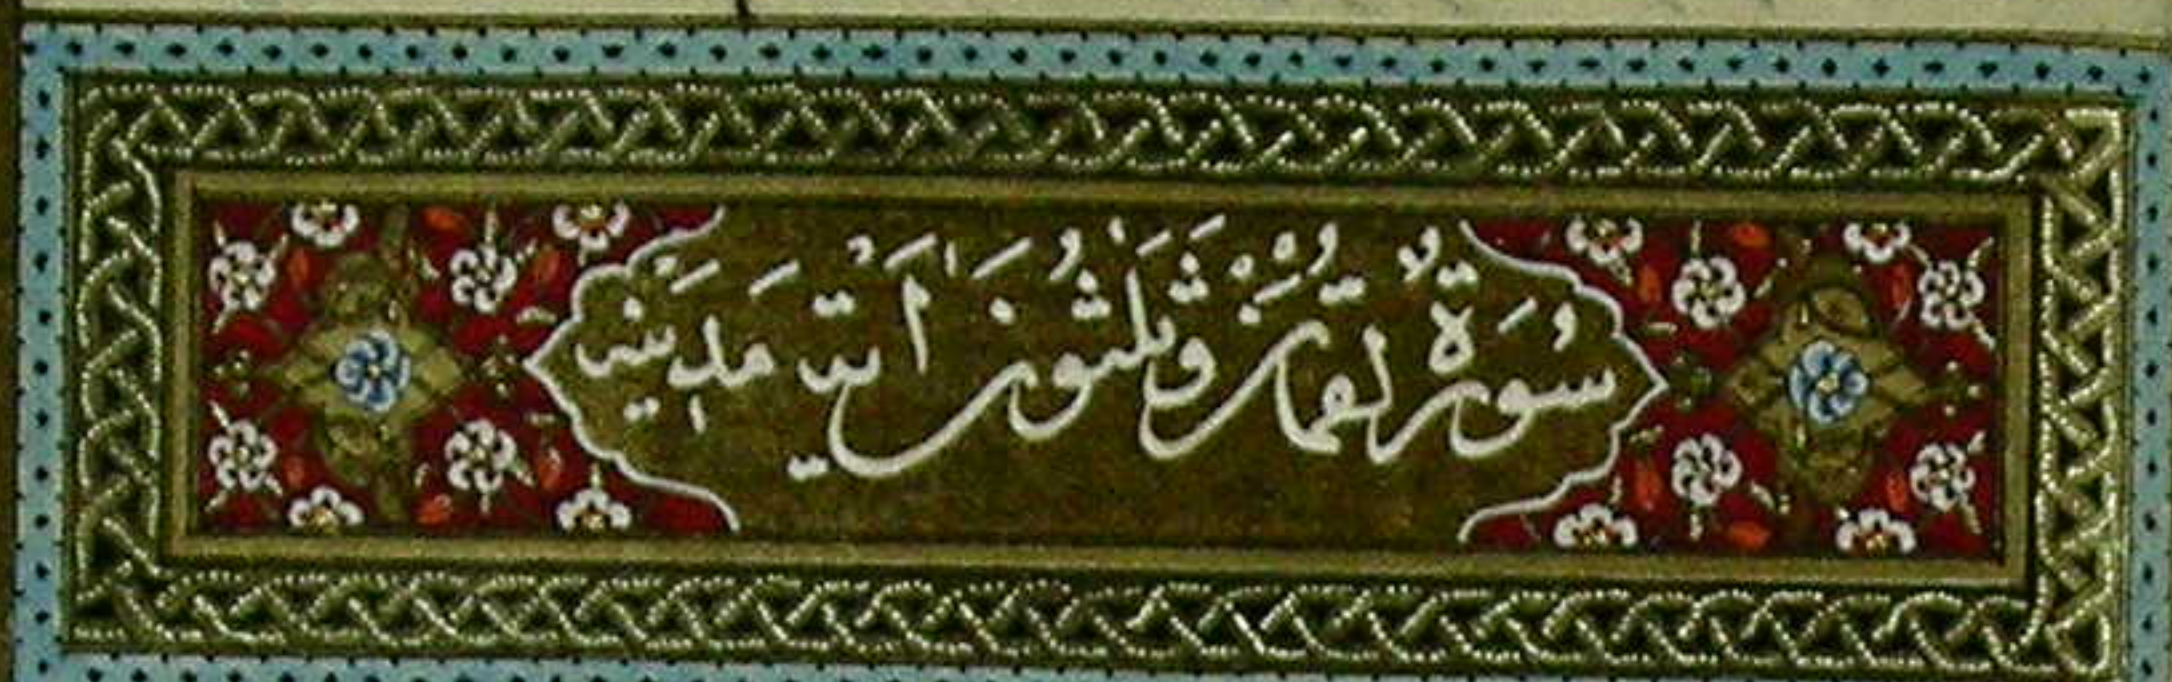 سُورَةُ لُقمٰنَ وَثَلٰثُونَ اٰيَتٍ مَدَنِيَّة